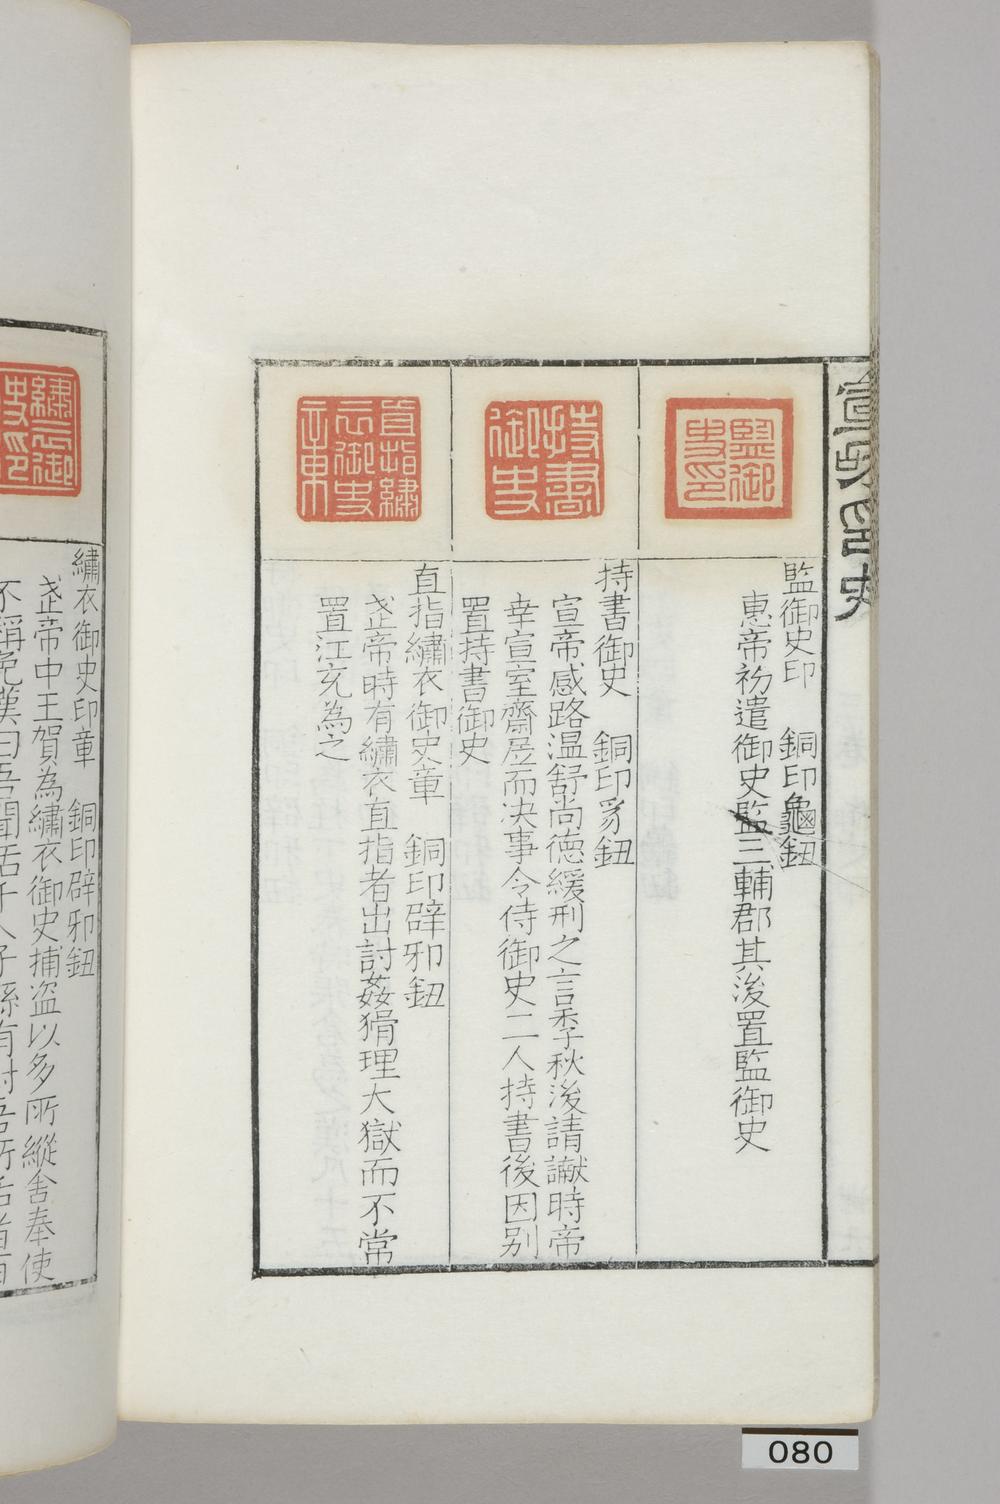 宣氏印史
監御史印
監御史印　銅印龜鈕
惠帝初遣御史監三輔郡其後置監御史
持書御史
持書御史　銅印豸鈕
宣帝感路温舒尚徳緩刑之言季秋後請讞時帝
幸宣室齋居而决事令侍御史二人持書後因别
置持書御史
直指繡衣御史章
直指繡衣御史章　銅印辟邪鈕
武帝時有繡衣直指者出討姦猾理大獄而不常
置江充為之
繡衣御史印章　銅印辟邪鈕
武帝中王賀為繡衣御史捕盗以多所縱舍奉使
不稱免漢曰吾聞活千人子孫有封吾所活者百
080